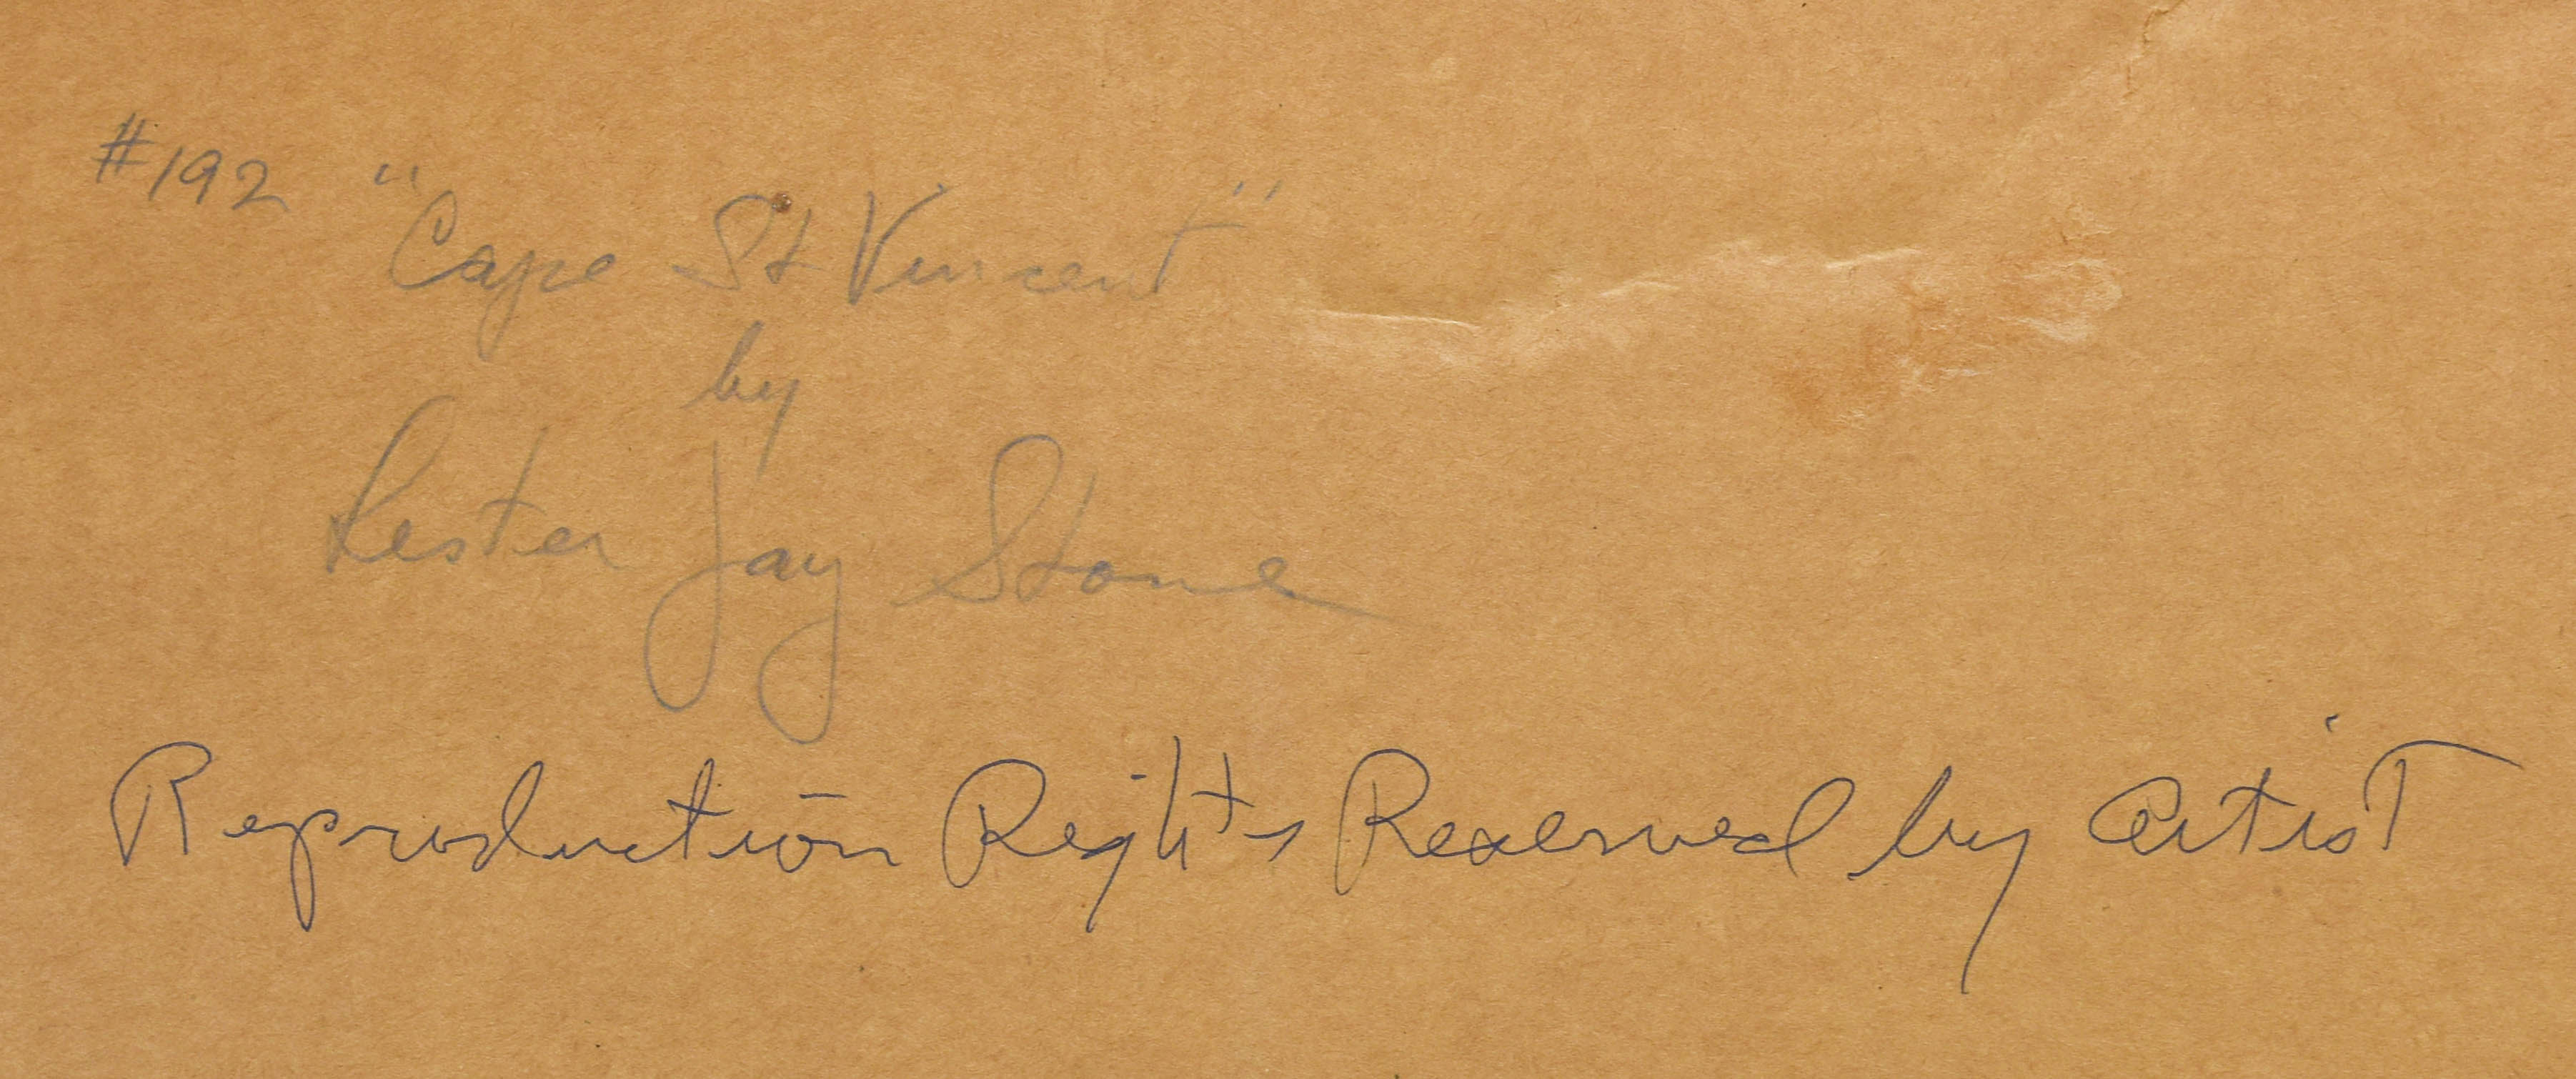 #192 "Cape St Vincent"
by
Lester Jay Stone
Reproduction Rights Reserved by Artist